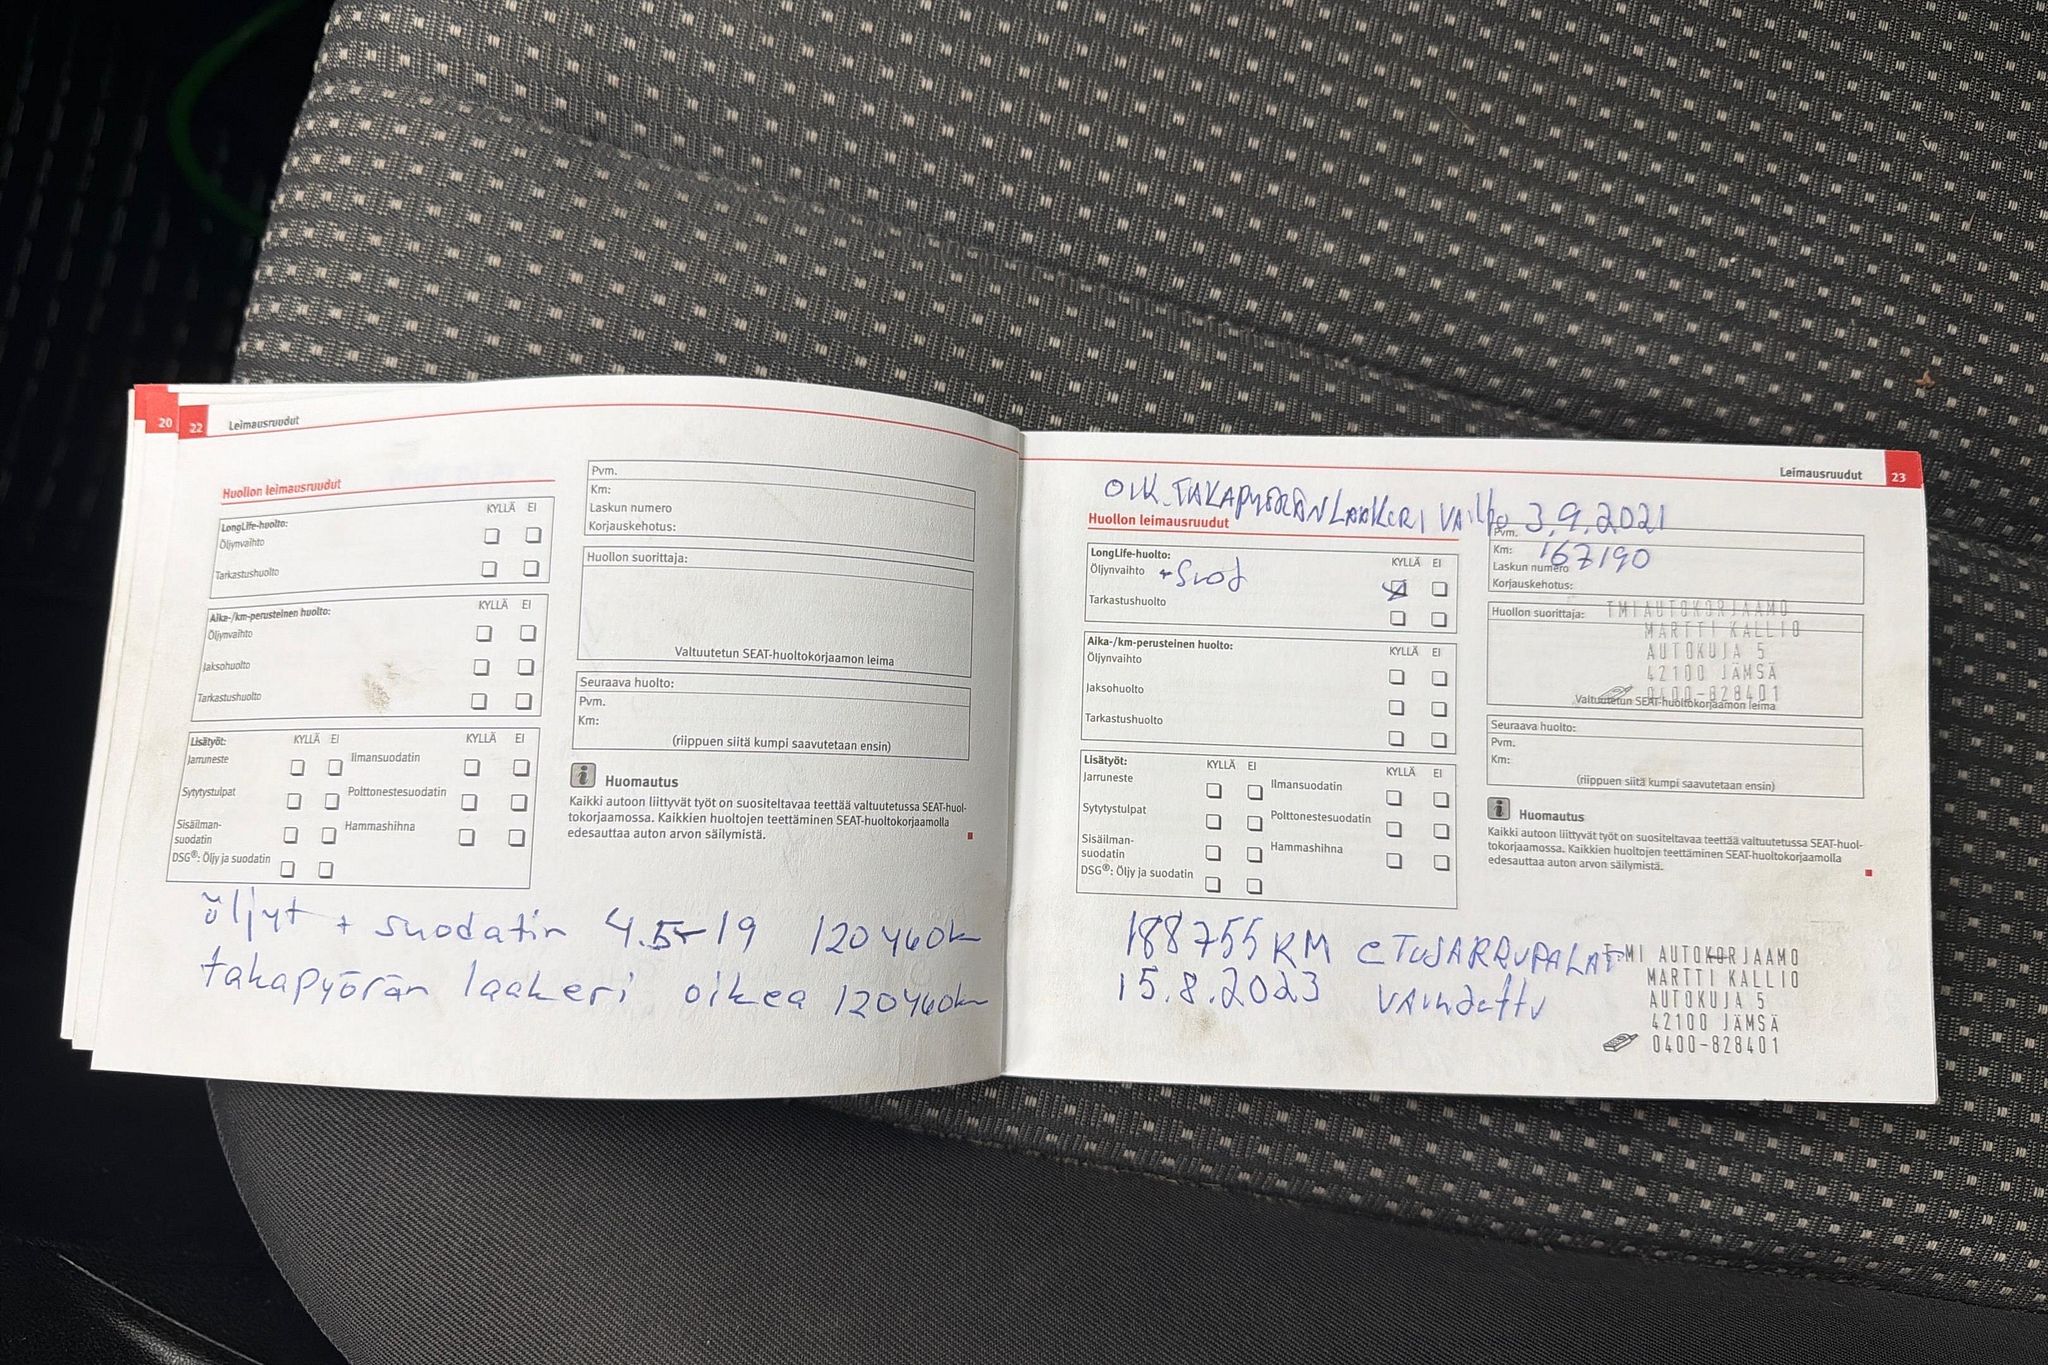 20
22
Leimausruudut
Huollon leimausruudut
LongLife-huolto:
KYLLÄ EI
Öljynvaihto
Tarkastushuolto
Aika-/km-perusteinen huolto:
KYLLÄ EI
Öljynvaihto
Jaksohuolto
Tarkastushuolto
Lisätyöt:
KYLLÄ EI
KYLLÄ EI
Jarruneste
Ilmansuodatin
Sytytystulpat
Polttonestesuodatin
Sisäilman-
suodatin
Hammashihna
DSG®: Öljy ja suodatin
Pvm.
Km:
Laskun numero
Korjauskehotus:
Huollon suorittaja:
Valtuutetun SEAT-huoltokorjaamon leima
Seuraava huolto:
Pvm.
Km:
(riippuen siitä kumpi saavutetaan ensin)
Huomautus
Kaikki autoon liittyvät työt on suositeltavaa teettää valtuutetussa SEAT-huol-
tokorjaamossa. Kaikkien huoltojen teettäminen SEAT-huoltokorjaamolla
edesauttaa auton arvon säilymistä.
öljyt + suodatin 4.5-19 120460km
takapyörän laakeri oikea 120460km
Leimausruudut
23
OIK. TAKAPYÖRÄN LAAKERI 3.9.2021
Huollon leimausruudut
LongLife-huolto:
KYLLÄ EI
Öljynvaihto + Suod
Tarkastushuolto
Aika-/km-perusteinen huolto:
KYLLÄ EI
Öljynvaihto
Jaksohuolto
Tarkastushuolto
Lisätyöt:
KYLLÄ EI
KYLLÄ EI
Jarruneste
Ilmansuodatin
Sytytystulpat
Polttonestesuodatin
Sisäilman-
suodatin
Hammashihna
DSG®: Öljy ja suodatin
Pvm.
Km: 167190
Laskun numero
Korjauskehotus:
Huollon suorittaja:
TMI AUTOKORJAAMO
MARTTI KALLIO
AUTOKUJA 5
42100 JÄMSÄ
0400-828401
Valtuutetun SEAT-huoltokorjaamon leima
Seuraava huolto:
Pvm.
Km:
(riippuen siitä kumpi saavutetaan ensin)
Huomautus
Kaikki autoon liittyvät työt on suositeltavaa teettää valtuutetussa SEAT-huol-
tokorjaamossa. Kaikkien huoltojen teettäminen SEAT-huoltokorjaamolla
edesauttaa auton arvon säilymistä.
188755 KM ETUJARRUPALAT
15.8.2023 VAIHDETTU
TMI AUTOKORJAAMO
MARTTI KALLIO
AUTOKUJA 5
42100 JÄMSÄ
0400-828401